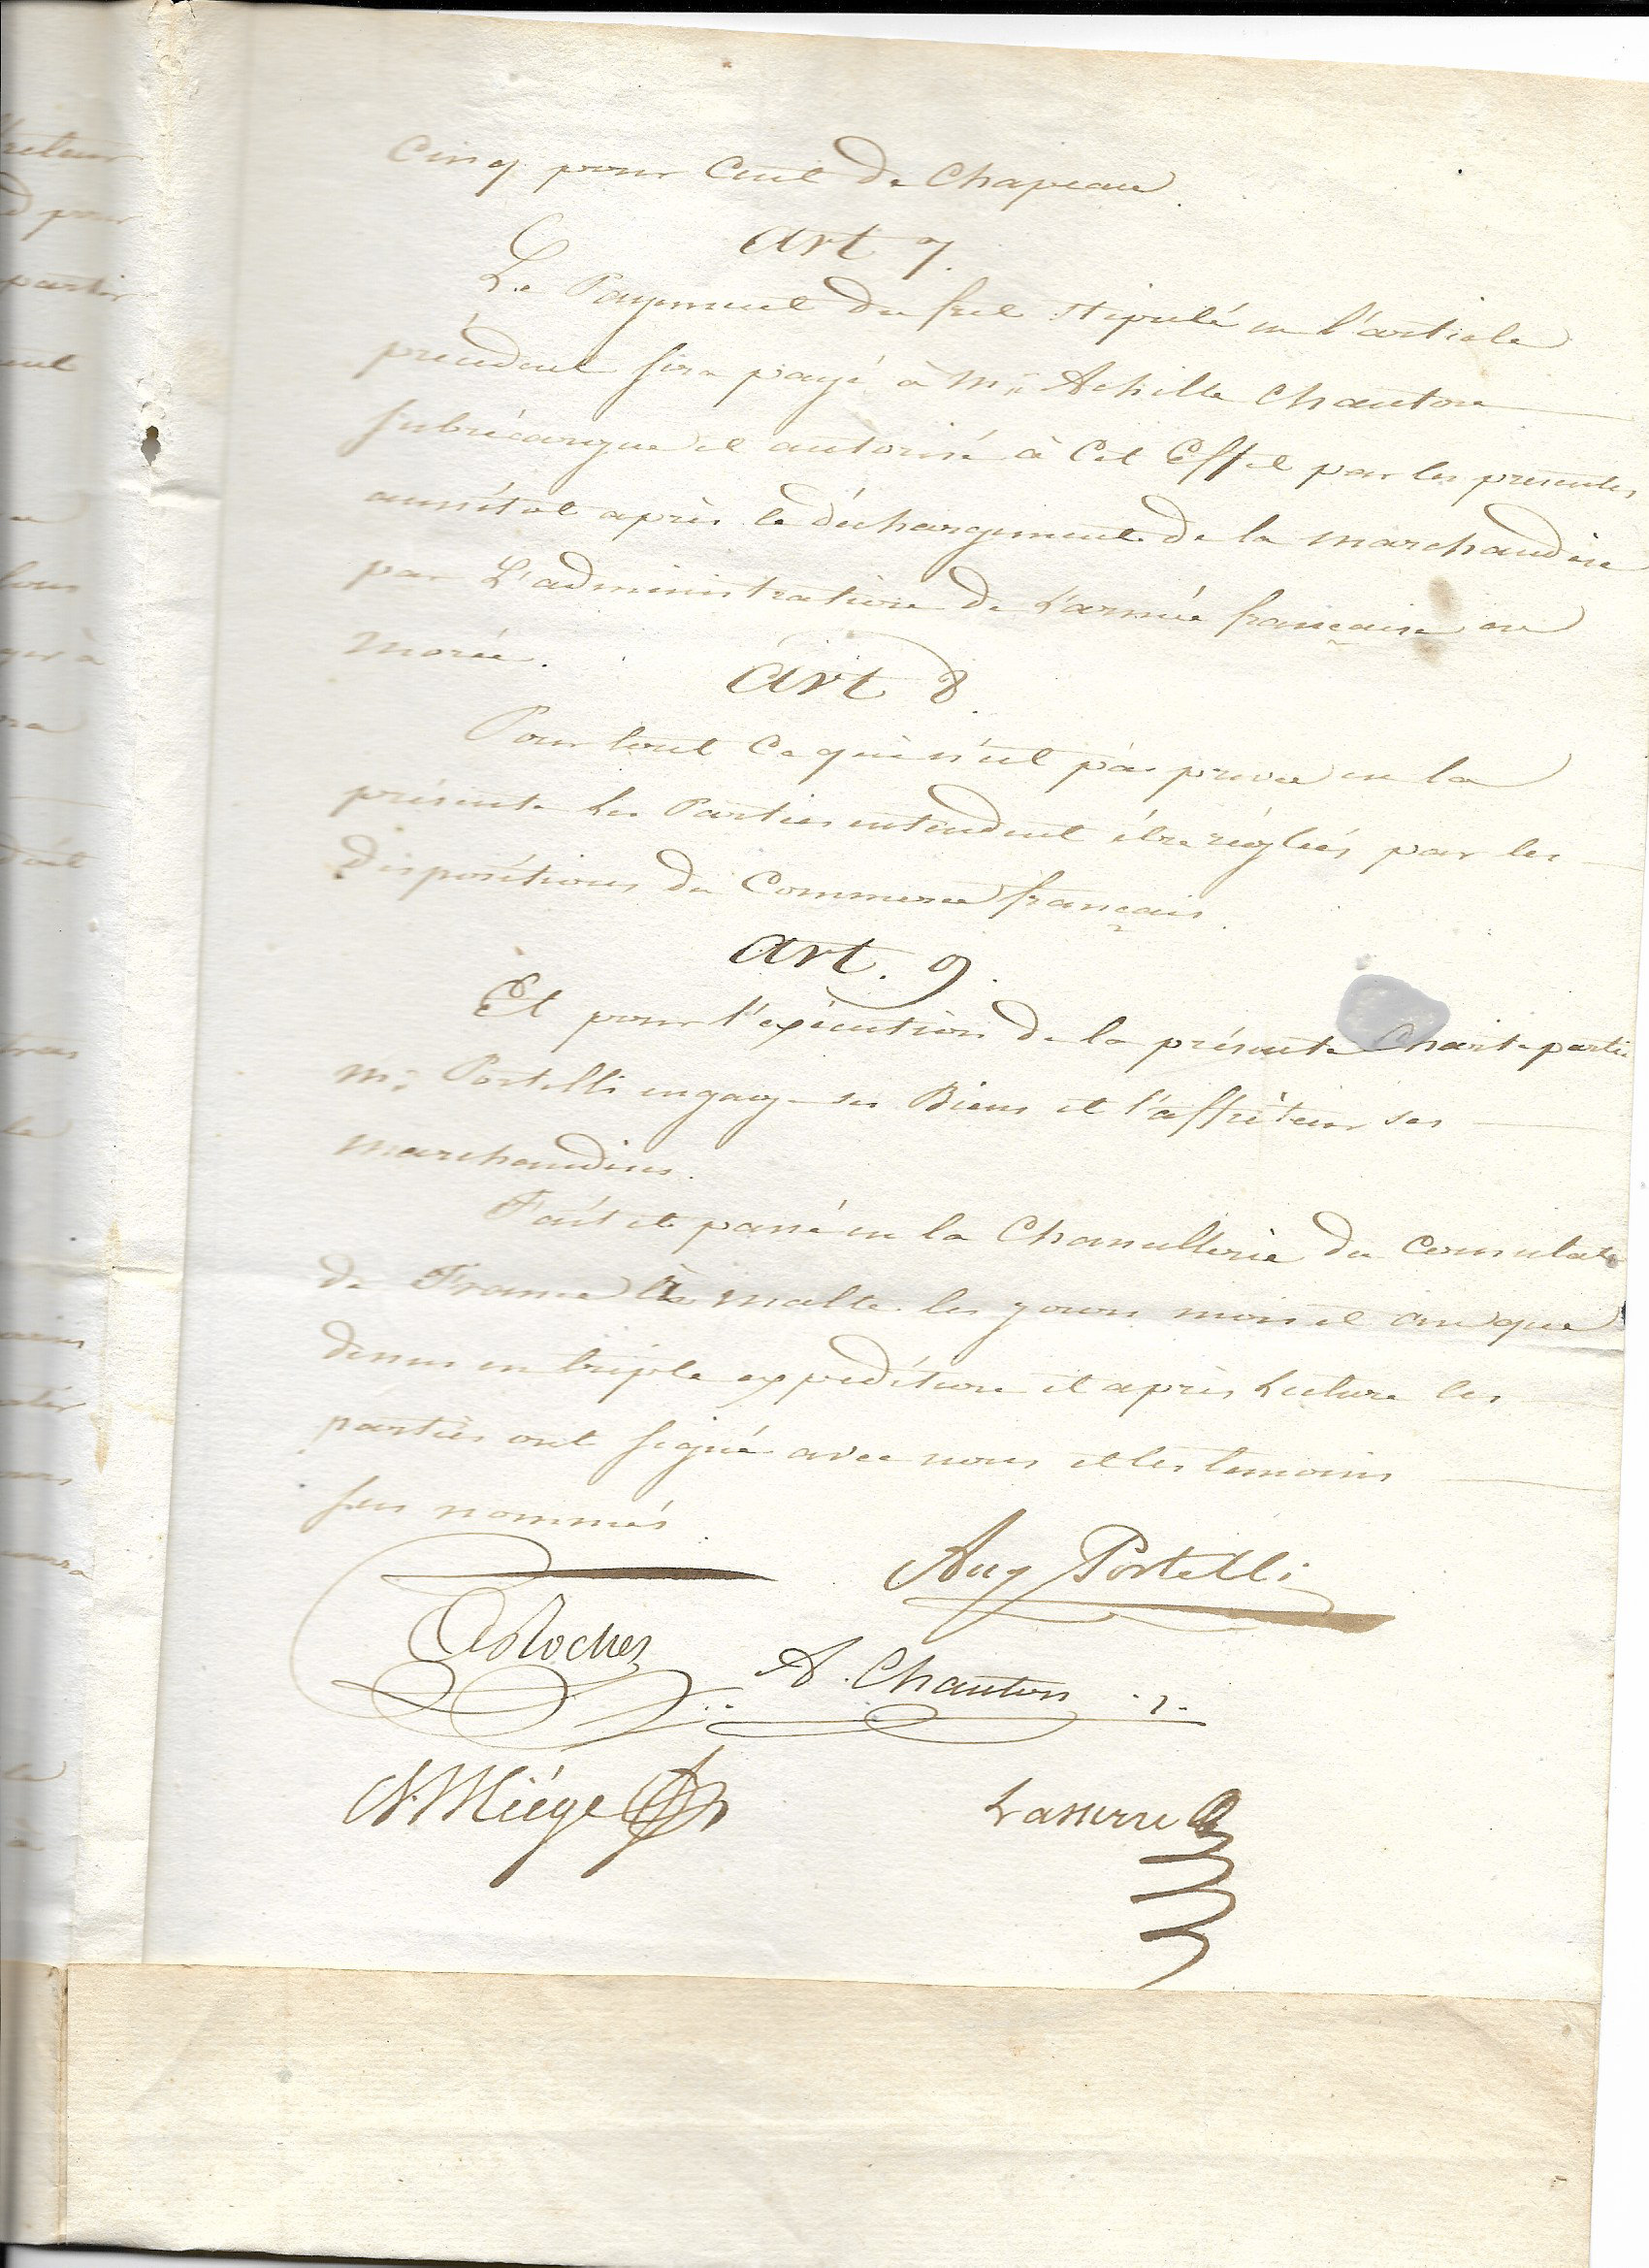 Cinq pour Cent de Chapeau.
Art 7.
Le Payement du fret stipulé en l'article
précédent sera payé à Mr. Achille Chanton
subrécargue et autorisé à Cet Effet par les présentes
aussitôt après le déchargement de la marchandise
par L'administration de L'armée française en
Morée.
Art 8.
Pour tout Ce qui n'est pas prevu en la
présente Les Parties entendent être réglées par les
dispositions du Commerce français.
Art. 9.
Et pour l'exécution de la présente Charte partie
Mr. Portelli engage ses Biens et l'affréteur ses
marchandises.
Fait et passé en la Chancellerie du Consulat
de France à Malte les jours mois et an que
dessus en triple expédition et après Lecture les
parties ont signé avec nous et les temoins
sus nommés.
Aug Portelli
A. Chanton
N. Miége
Lasserre